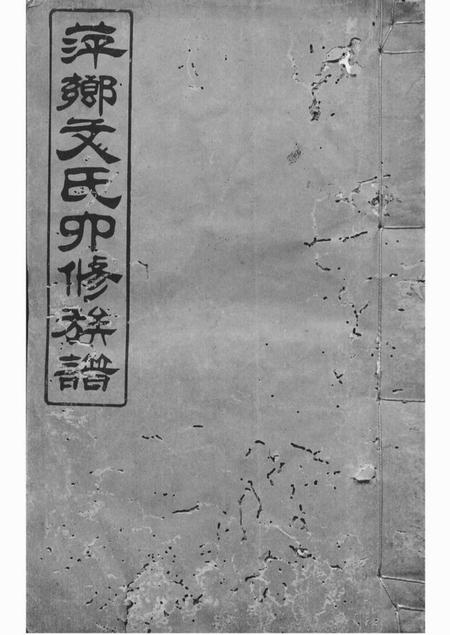 萍鄉文氏卯修族譜